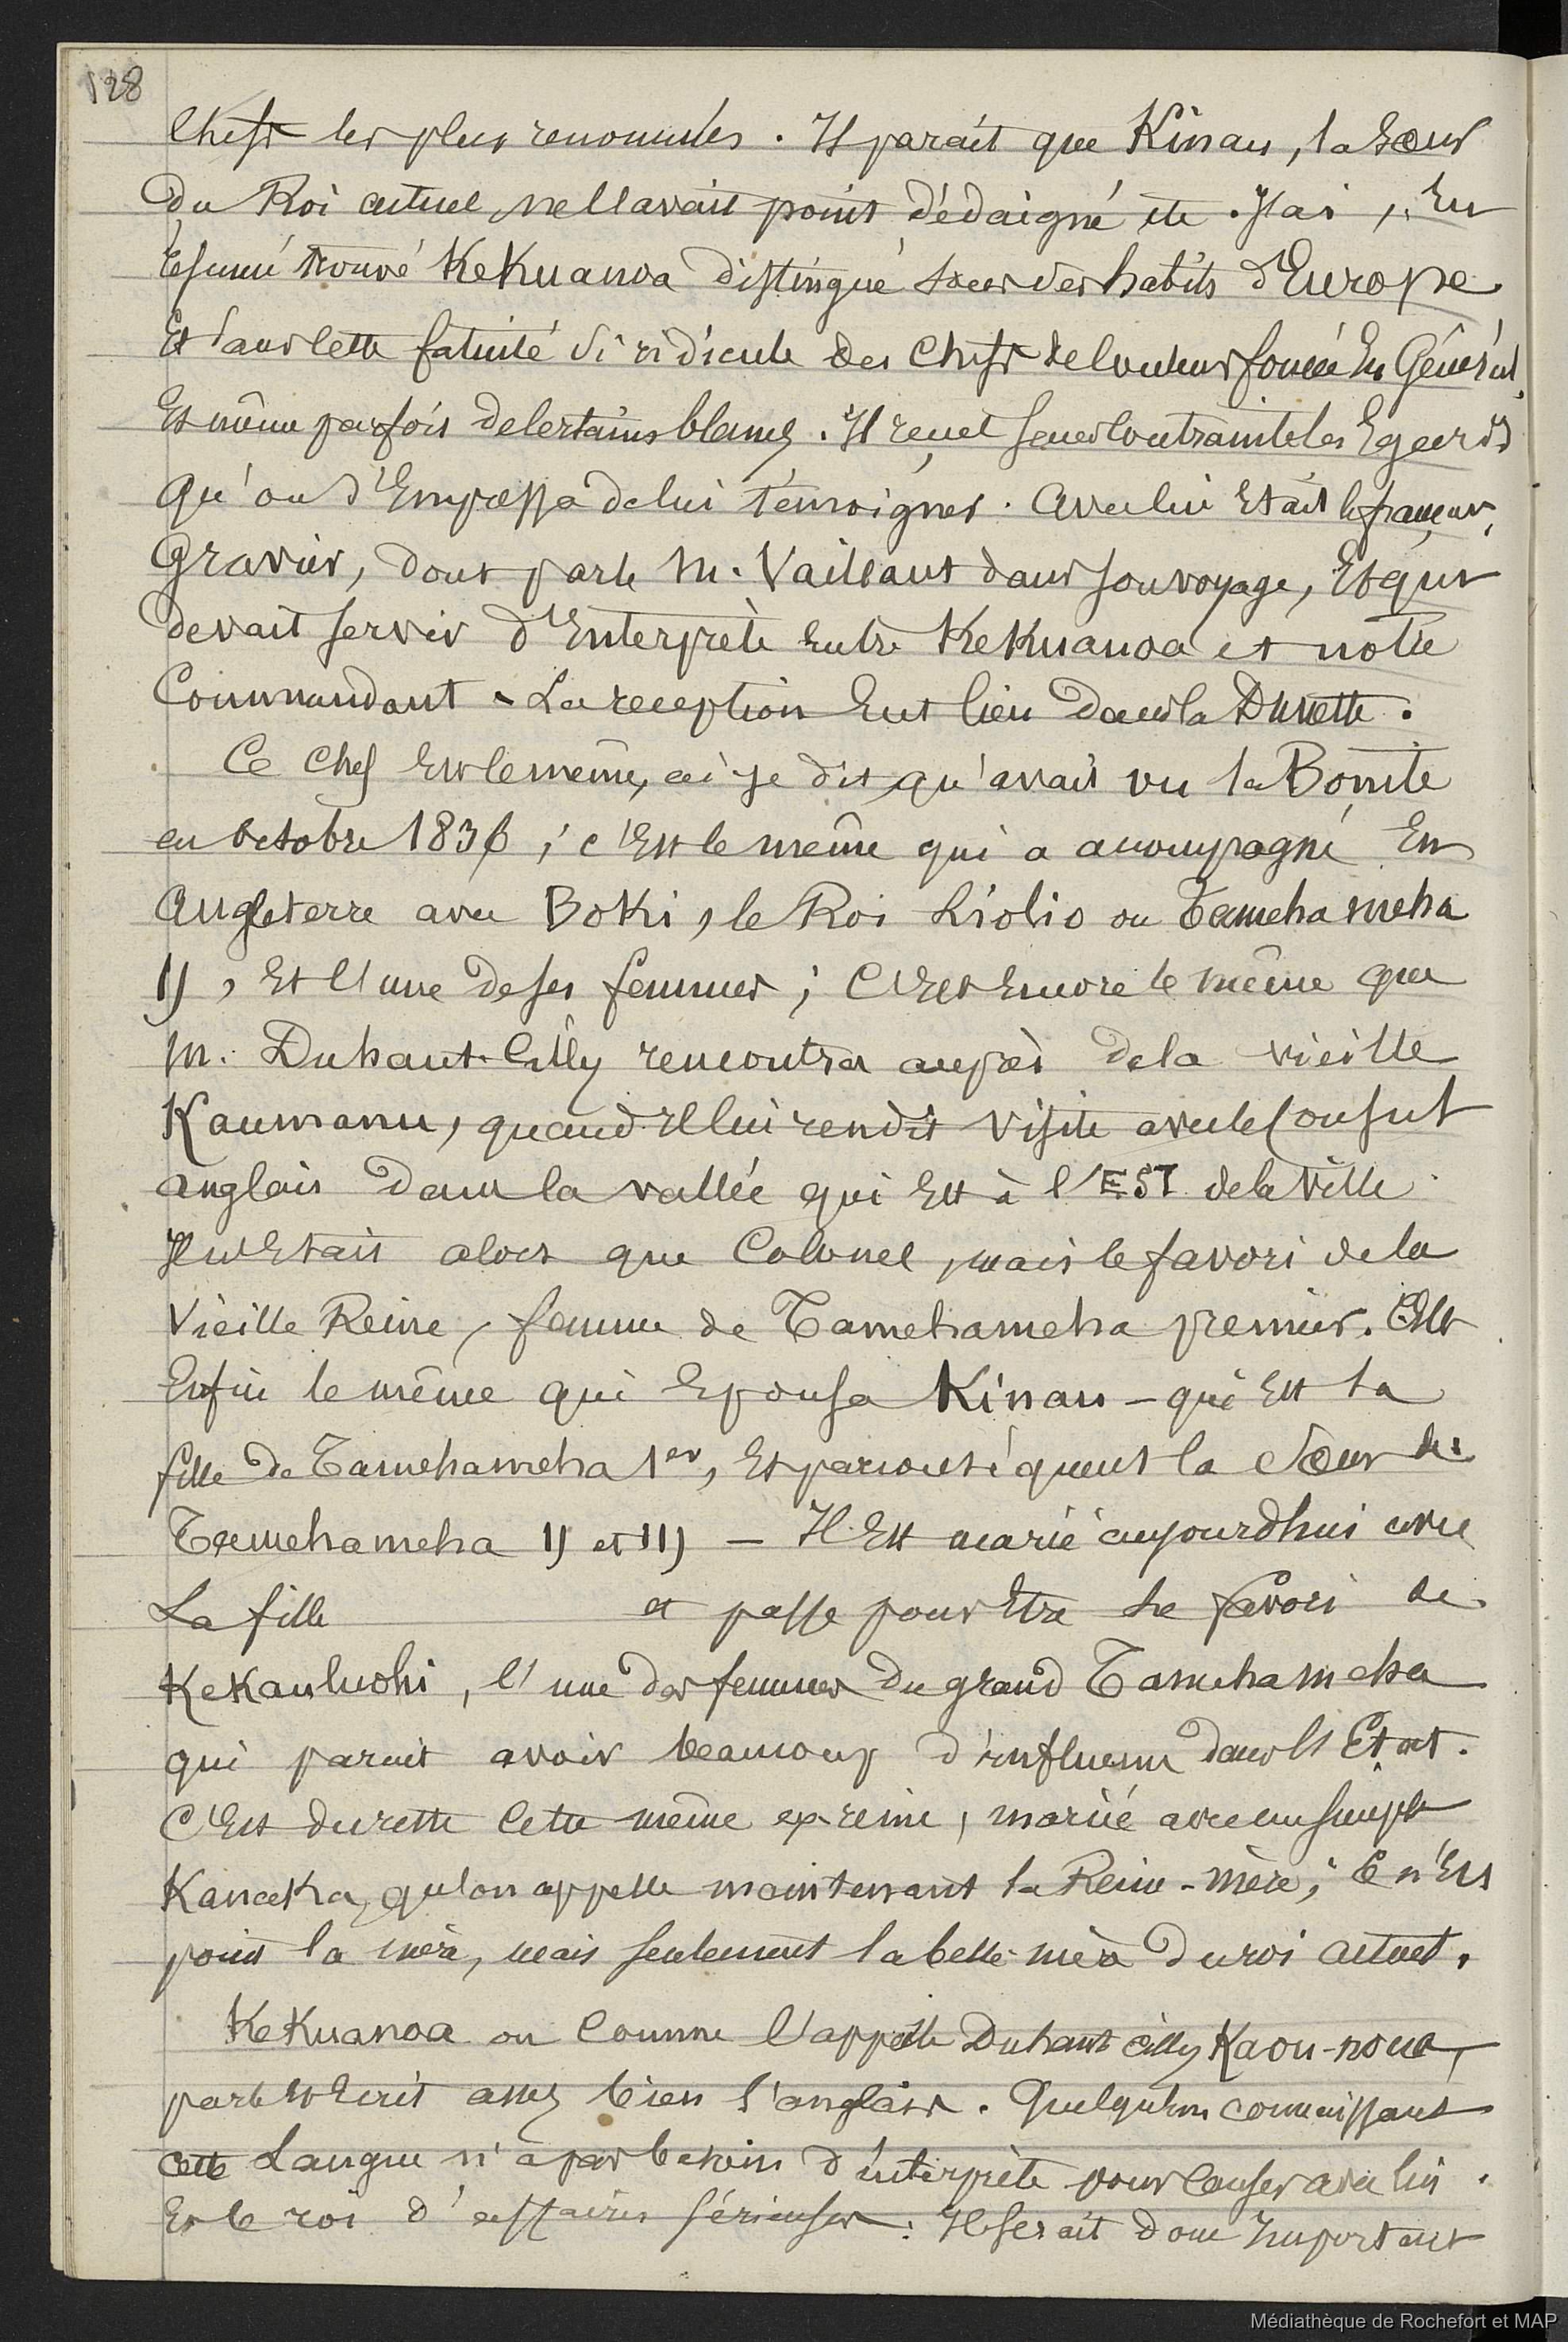 128
Chefs les plus renommés. Il parait que Kinau, la Sœur
du Roi actuel ne l'avait point dédaigné etc. J'ai, En
résumé trouvé KeKuanoa distingué sous des habits d'Europe
Et sans cette fatuité si ridicule des Chefs de couleur foncée En Général,
Et même parfois de certains blancs. Il reçut sans contrainte les Egards
Qu'on s'Empressa de lui témoigner. Avec lui Etait le français,
Gravier, dont parle M. Vaillant dans son voyage, Et qui
devait servir d'Enterprète Entre KeKuanoa et notre
Commandant - La reception Eut lieu dans la Dunette.
Ce Chef Est le même, ai-je dit, qu'avait vu la Bonite
en octobre 1836; c'Est le même qui a accompagné En
Angleterre avec BoKi, le Roi Liolio ou Tamehameha
II, Et l'une de ses femmes; C'Est Encore le même que
M. Duhaut-Cilly rencontra auprès de la vieille
Kaumanu, quand Il lui rendit visite avec le Consul
anglais dans la vallée qui Est à l'EST de la Ville.
Il n'Etait alors que Colonel, mais le favori de la
Vieille Reine, femme de Tamehameha premier. C'Est
Enfin le même qui Epousa Kinau - qui Est la
fille de Tamehameha 1er, Et par conséquent la Sœur de
Tamehameha II et III - Il Est marié aujourdhui avec
La fille et passe pour Etre le favori de
KeKauluohi, l'une des femmes du grand Tamehameha
qui parait avoir beaucoup d'influence dans l'Etat.
C'Est du reste Cette même ex-reine, mariée avec un simple
KanaKa, qu'on appelle maintenant la Reine-mère; Ce n'Est
point la mère, mais seulement la belle-mère du roi actuel.
KeKuanoa ou Comme l'appelle Duhaut cilly Kaou-noua,
parle et Ecrit assez bien l'anglais. Quelqu'un connaissant
cette Langue n'a pas besoin d'interprète pour Causer avec lui
Et le roi d'affaires sérieuses. Il serait donc Important
Médiathèque de Rochefort et MAP